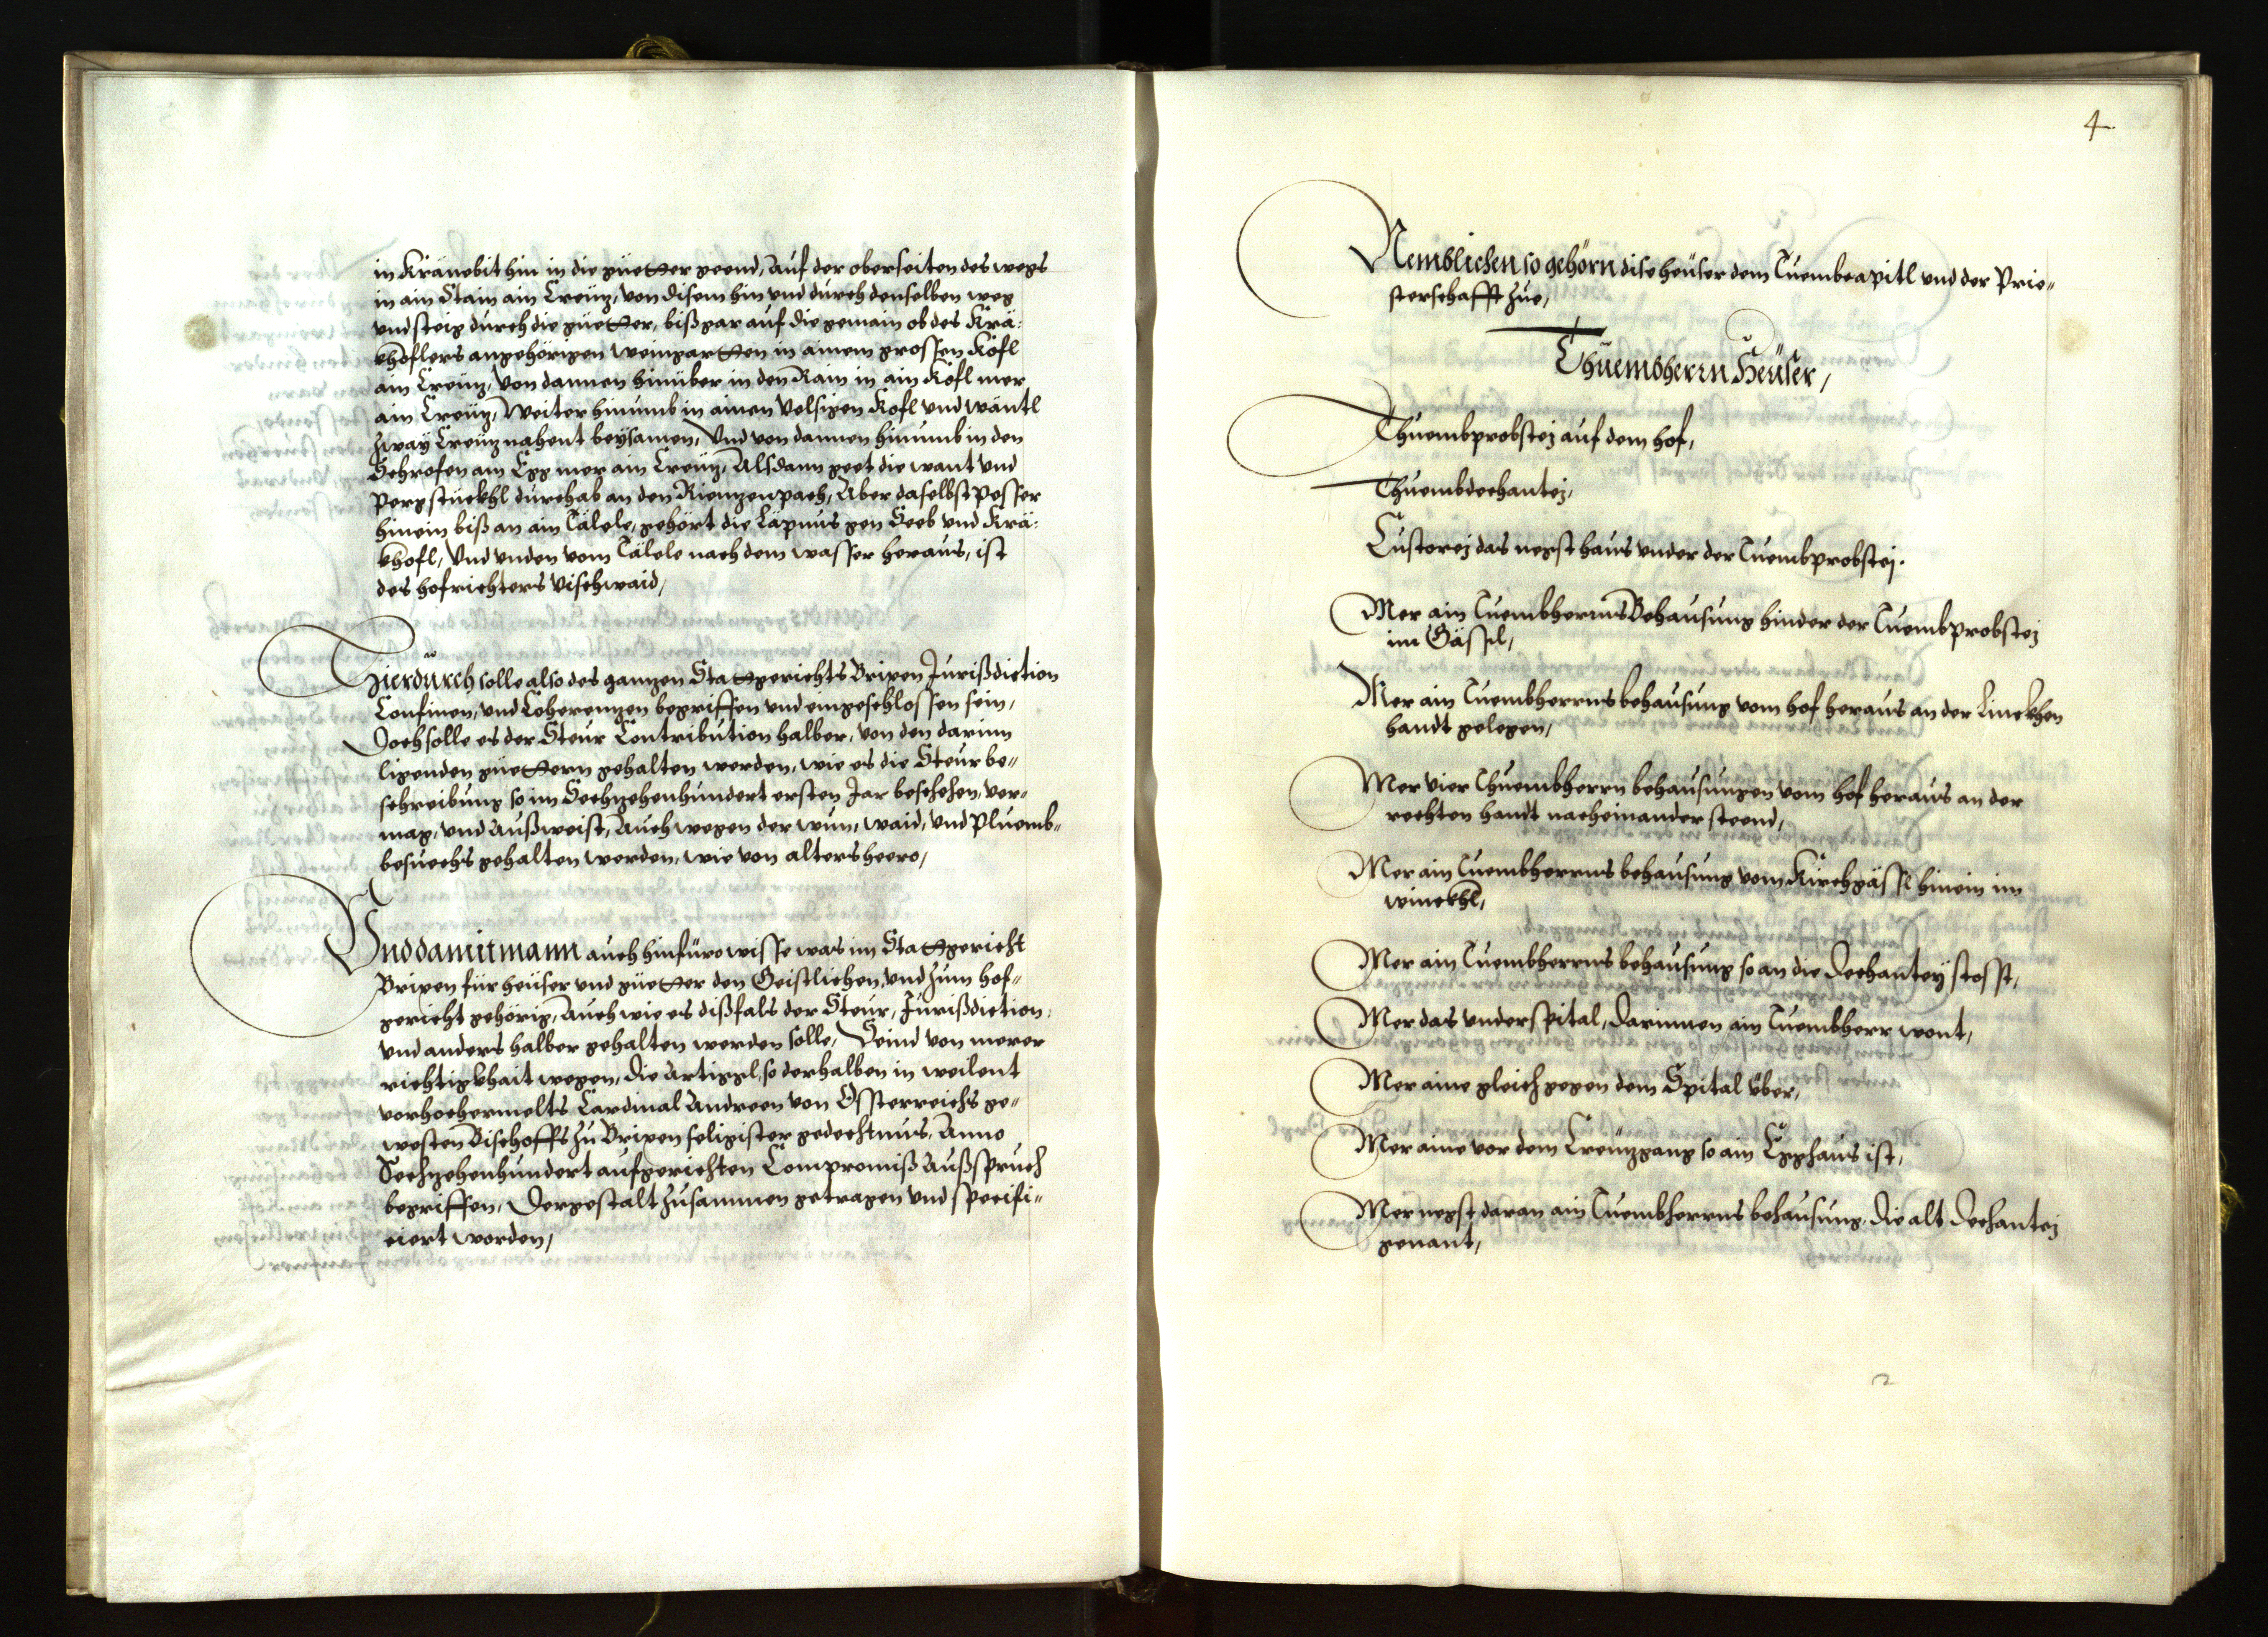 in Kränebit hin in die güetter geend, Auf der oberseiten des wegs
in ain Stain ain Creüz, von disem hin vnd durch denselben weg
vnd steig durch die güetter, biß gar auf die gemain ob des Krä=
khoflers angehörigen weingartten in ainem grossen Kofl
ain Creüz, Von dannen hinüber in den Rain in ain Kofl mer
ain Creüz, Weiter hinumb in ainen Velsigen Kofl vnd wäntl
zway Creüz nahent beysamen, Vnd von dannen hinumb in den
Schrofen am Egg mer ain Creüz, Alsdann geet die want vnd
Pergstückhl durchab an den Rienzenpach, Aber daselbst Pesser
hinein biß an ain Tälele, gehört die Läpnus gen Seeb vnd Krä=
khofl, Vnd vnden vom Tälele nach dem wasser heraus, ist
des hofrichters Vischwaid,
Hierdurch solle also des ganzen Stattgerichts Brixen Jurißdiction
Confinen, vnd Coherenzen begriffen vnd eingeschlossen sein,
Doch solle es der Steur Contribution halber, von den darinn
ligenden güettern gehalten werden, wie es die Steurbe=
schreibung so im Sechzehenhundert ersten Jar beschehen, ver=
mag, vnd Außweist, Auch wegen der wun, waid, vnd Pluemb=
besuechs gehalten werden, wie von alters heero,
Vnd damit mann auch hinfüro wisse was im Stattgericht
Brixen für heüser vnd güetter den Geistlichen, vnd zum hof=
gericht gehörig, Auch wie es dißfals der Steur, Jurißdiction,
vnd anders halber gehalten werden solle, Seind von merer
richtigkhait wegen, die Artiggl, so derhalben in weilent
vorhochermelts Cardinal Andreen von Össterreichs ge=
westen Bischoffs zu Brixen seligister gedechtnus, Anno
Sechzehenhundert aufgerichten Compromiß Außspruch
begriffen, Dergestalt zusammen getragen vnd specifi=
ciert worden,
4.
Nemblichen so gehörn dise heüser dem Tuembcapitl vnd der Prie=
sterschafft zue,
Thuembherrn Heüser,
Thuembprobstej auf dem hof,
Thuembdechantej,
Custorej das negst haus vnder der Tuembprobstej.
Mer ain Tuembherrns Behausung hinder der Tuembprobstej
im Gässl,
Mer ain Tuembherrns behausung vom hof heraus an der Linckhen
handt gelegen,
Mer vier Thuembherrn behausungen vom hof heraus an der
rechten handt nacheinander steend,
Mer ain Tuembherrns behausung vom Kirchgässl hinein im
winckhl,
Mer ain Tuembherrns behausung so an die Dechantey stosst,
Mer das vnderspital, darinnen ain Tuembherr wont,
Mer aine gleich gegen dem Spital über,
Mer aine vor dem Creüzgang so ain Egghaus ist,
Mer negst daran ain Tuembherrns behausung, die alt Dechantej
genant,